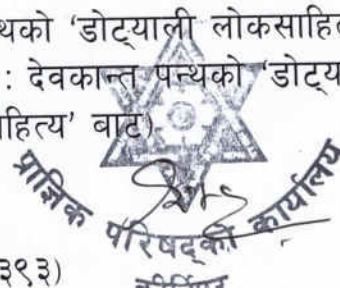 थको ‘डोट्याली लोकसाहित
: देवकान्त पन्थको ‘डोट्य
हित्य’ बाट)
प्राज्ञिक परिषद्को कार्यालय
३९३)
कीर्तिपुर